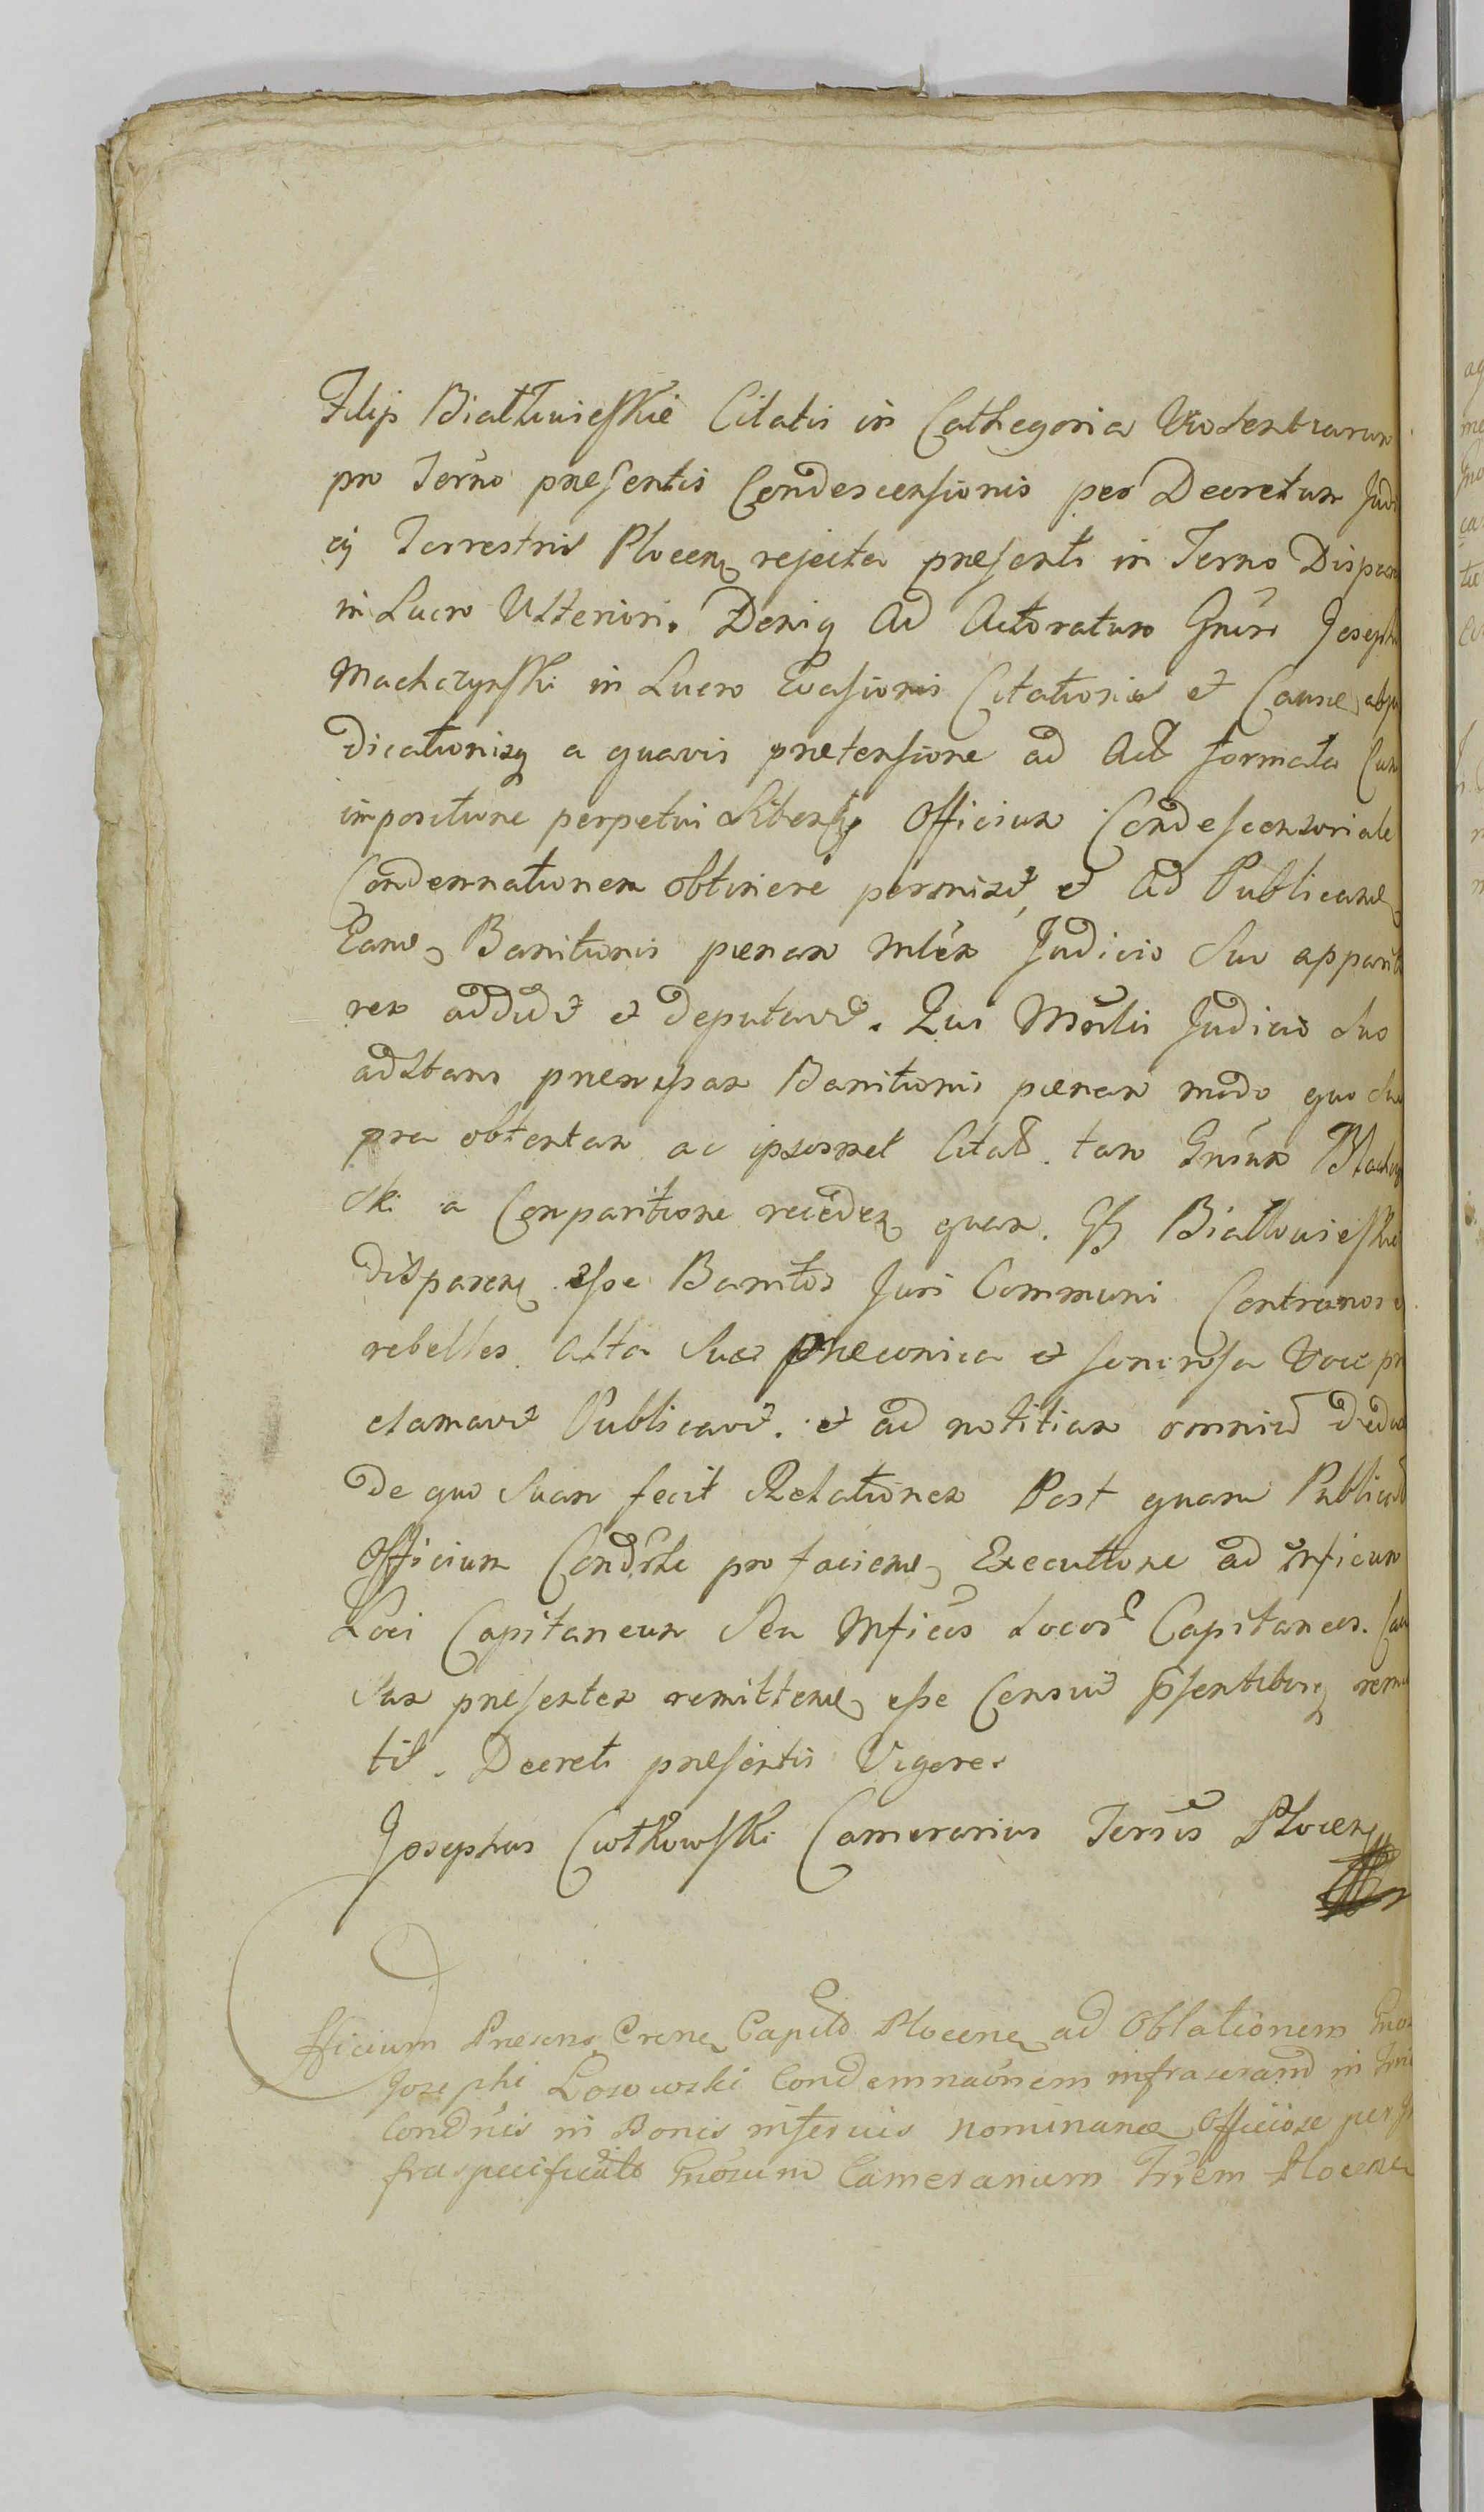 Filip Białłowieskie Citatis in Cathegoria Violentiarum
pro Terno praesentis Condescensionis per Decretum Judi
cij Terrestris Plocen rejecta praesenti in Termo Disparen
in Lucro Ulteriori. Deniq Ad Actoratum Gnīsi Josephi
Machczynski in Lucro Evasionis Citationis et Causae abju
dicationisq a quavis praetensione ad Act formata Cum
impositione perpetui Silentij Officium Condescensoriale
Condemnationem obtinere permisit, et Ad Publicand
Eand Banitionis paenam Mlem Judicio Suo apparito
rem addidit et deputavit. Qui Mrlis Judicio Suo
adstans praemissam Banitionis paenam modo quo Su
pra obtentam ac ipsosmet Citat. tam Gnsum Machczyn
Ski a Comparitione receden quam. Białłowieskie
disparen. esse Banitos Juri Communi Contrarios et
rebelles. alta Sua praeconica et sonorosa Voce pro
clamavit Publicavit. et ad notitiam omnium dedux
De quo Suam fecit Relationem Post quam Publicat
Officium Condrle pro faciend Executione ad Inficum
Loci Capitaneum Seu Mficos Locor Capitaneos. Cau
Sam praesentem remittend esse Censuit psentibusq remit
tit. Decreti praesentis Vigore.
Josephus Cwotkowski Camerarius Terris Plocen
Officium Praesens Crene Capitle Plocene ad Oblationem Gnosi
Josephi Losowski Condemnaōnem infrascram in
Condriis in Bonis inferius nominand Officiose per In
fraspecificato Gnosum Camerarium Trrēm Plocene